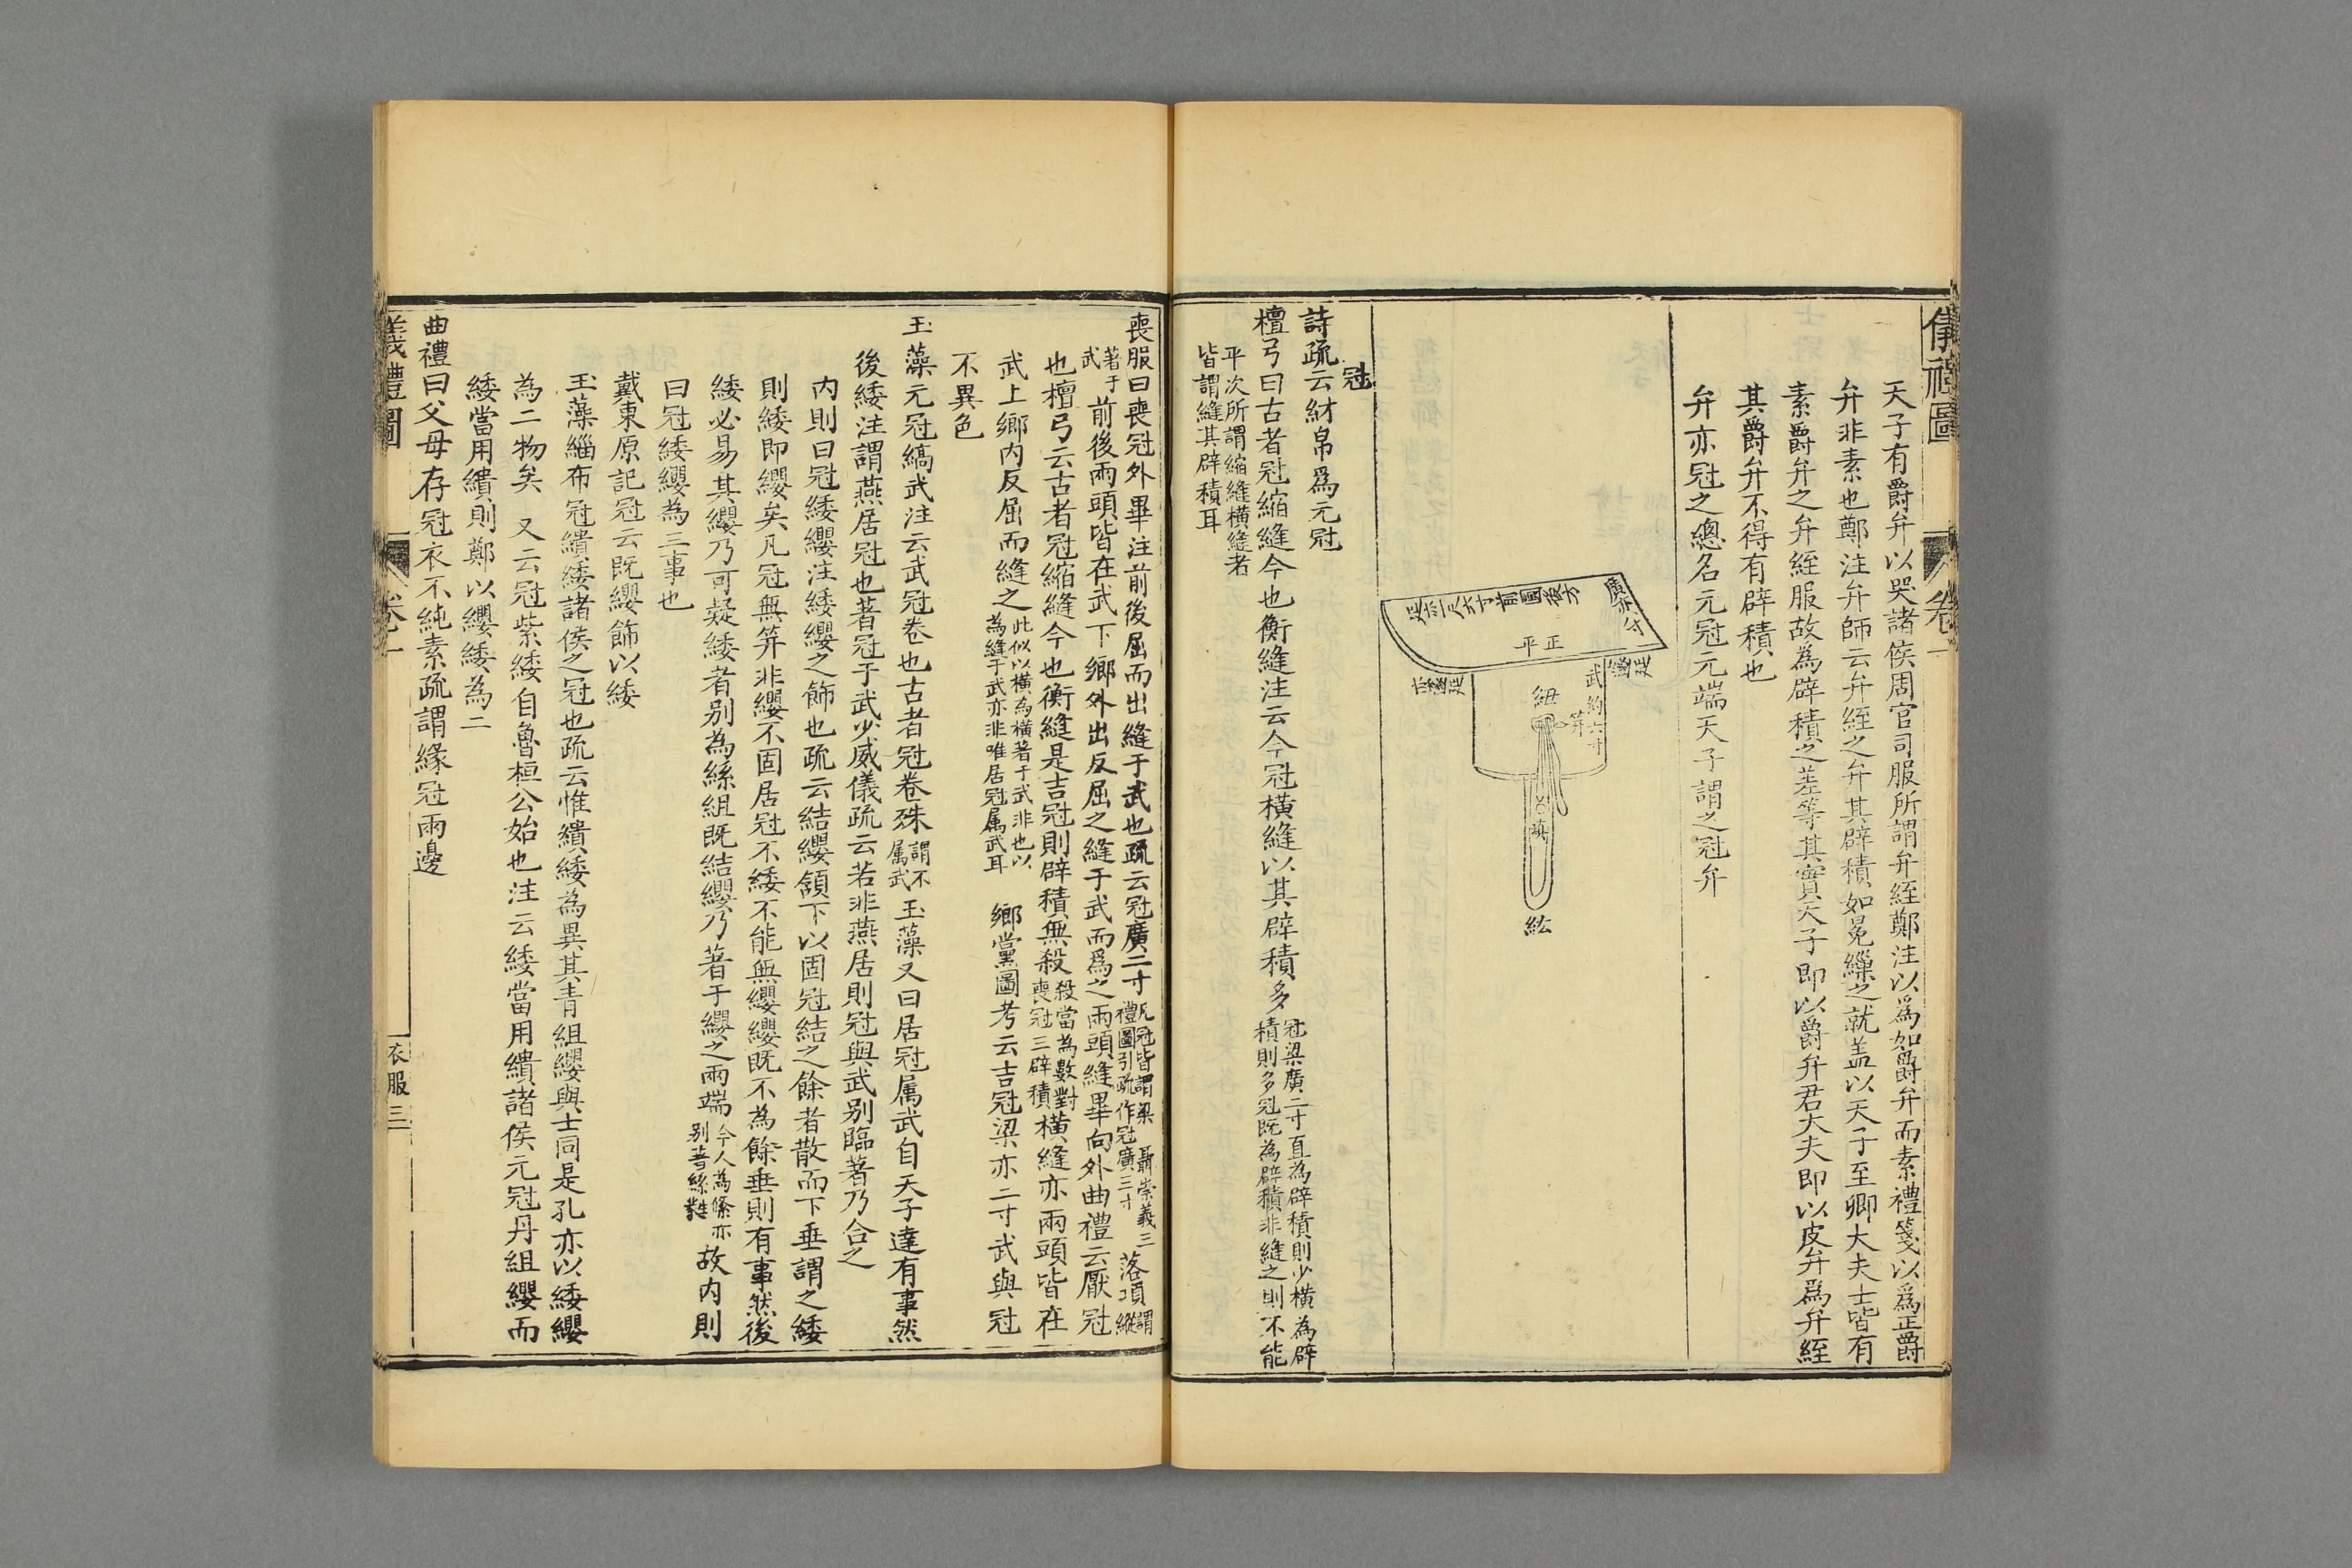 儀禮圖
卷一
天子有爵弁以哭諸侯周官司服所謂弁絰鄭注以爲如爵弁而素禮箋以爲正爵
弁非素也鄭注弁師云弁絰之弁其辟積如冕繅之就盖以天子至卿大夫士皆有
素爵弁之弁絰服故為辟積之差等其實天子即以爵弁君大夫即以皮弁爲弁絰
其爵弁不得有辟積也
弁亦冠之總名元冠元端天子謂之冠弁
廣八寸
延長尺六寸前圓後方
正平
武約六寸
紐
笄
瑱
紘
冠
詩疏云材帛爲元冠
檀弓曰古者冠縮縫今也衡縫注云今冠橫縫以其辟積多
冠梁廣二寸直為辟積則少橫為辟
積則多冠既為辟積非縫之則不能
平次所謂縮縫橫縫者
皆謂縫其辟積耳
喪服曰喪冠外畢注前後屈而出縫于武也疏云冠廣二寸
凡冠皆謂梁 聶崇義三
禮圖引疏作冠廣三寸
落項
謂縱
著于
武
前後兩頭皆在武下鄉外出反屈之縫于武而爲之兩頭縫畢向外曲禮云厭冠
也檀弓云古者冠縮縫今也衡縫是吉冠則辟積無殺
殺當為數對
喪冠三辟積
橫縫亦兩頭皆在
武上鄉内反屈而縫之
此似以橫為橫著于武非也以
為縫于武亦非唯居冠属武耳
鄉黨圖考云吉冠梁亦二寸武與冠
不異色
玉藻元冠縞武注云武冠卷也古者冠卷殊
謂不
属武
玉藻又曰居冠属武自天子達有事然
後緌注謂燕居冠也著冠于武少威儀疏云若非燕居則冠與武别臨著乃合之
内則曰冠緌纓注緌纓之飾也疏云結纓頷下以固冠結之餘者散而下垂謂之緌
則緌即纓矣凡冠無笄非纓不固居冠不緌不能無纓纓既不為餘垂則有事然後
緌必易其纓乃可疑緌者别為絲組既結纓乃著于纓之兩端
今人為絛亦
别著絲㲚
故内則
曰冠緌纓為三事也
戴東原記冠云既纓飾以緌
玉藻緇布冠繢緌諸侯之冠也疏云惟繢緌為異其青組纓與士同是孔亦以緌纓
為二物矣 又云冠紫緌自魯桓公始也注云緌當用繢諸侯元冠丹組纓而
緌當用繢則鄭以纓緌為二
曲禮曰父母存冠衣不純素疏謂緣冠兩邊
儀禮圖
卷一
衣服
三